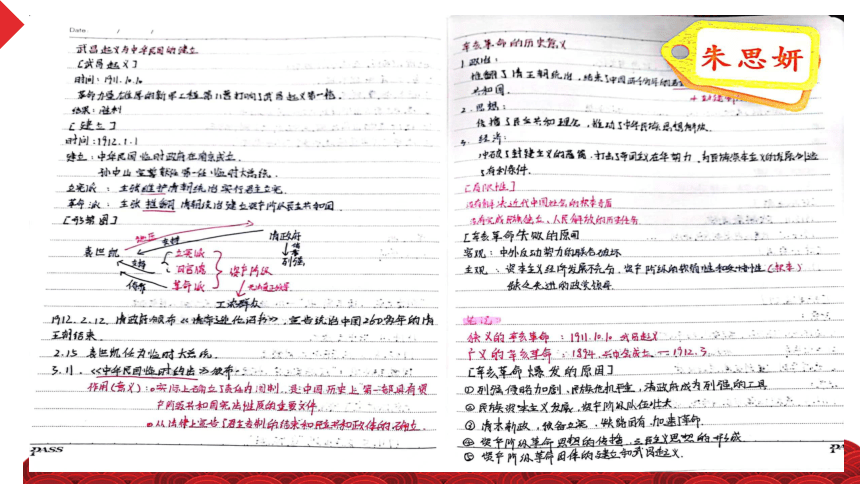 Date: / /
武昌起义与中华民国的建立
[武昌起义]
时间:1911.10.10
革命力量在推厚的新军工程第八营打响了武昌起义第一枪.
结果:胜利
[建立]
时间:1912.1.1
建立:中华民国临时政府在南京成立.
孙中山宣誓就任第一任临时大总统.
立宪派:主张维护清朝统治实行君主立宪.
革命派:主张推翻清朝统治建立资产阶级民主共和国.
[形势图]
支持
清政府
袁世凯
支持
立宪派
旧官僚
革命派
资产阶级
列强
工农群众
1912.2.12. 清政府颁布《清帝退位诏书》,宣告统治中国260多年的清
王朝结束.
2.15 袁世凯任为临时大总统.
3.11.《中华民国临时约法》颁布
作用(意义):①实际上确立了责任内阁制.是中国历史上第一部具有资
产阶级共和国宪法性质的重要文件
②从法律上宣告了君主专制的结束和民主共和政体的确立.
PASS
朱思妍
辛亥革命的历史意义
1.政治:
推翻了清王朝统治,结束了中国两千多年的
共和国.
2.思想:
传播了民主共和理念,推动了中华民族思想解放.
3. 经济:
冲破了封建主义的藩篱.打击了帝国主义在华势力.为民族资本主义的发展创造
了有利条件.
[局限性]
没有解决近代中国社会的根本矛盾
没有完成民族独立、人民解放的历史任务
[辛亥革命失败的原因]
客观:中外反动势力的联合破坏
主观:资本主义经济发展不充分.资产阶级的软弱性和妥协性(根本)
缺乏先进的政党领导
笔记
狭义的辛亥革命:1911.10.10 武昌起义
广义的辛亥革命:1894.兴中会成立.—1912.3.
[辛亥革命爆发的原因]
①列强侵略加剧、民族危机严重,清政府成为列强的工具
②民族资本主义发展.资产阶级队伍壮大
③清末新政,预备立宪.铁路国有.加速了革命.
④资产阶级革命思想的传播.三民主义思想的形成
⑤资产阶级革命团体的建立和武昌起义.